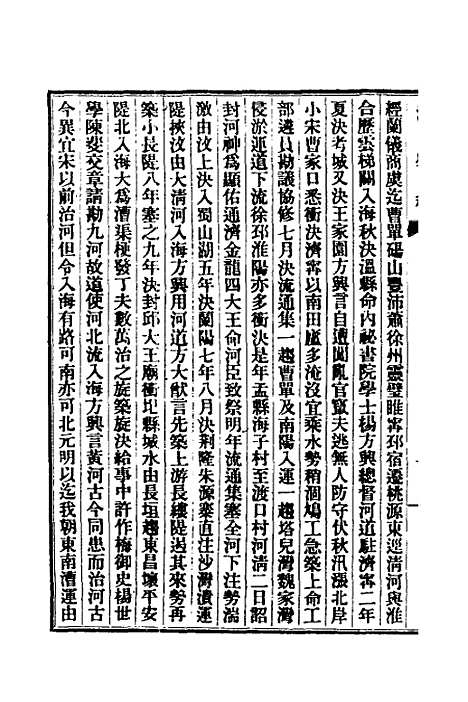 經蘭儀商虞迄曹單碭山豐沛蕭徐州靈璧睢寧邳宿遷桃源東逕清河與淮
合歷雲梯關入海秋決溫縣命內秘書院學士楊方興總督河道駐濟寧二年
夏決考城又決王家園方興言自遭闖亂官竄夫逃無人防守伏秋汛漲北岸
小宋曹家口悉衝決濟寧以南田廬多淹沒宜乘水勢稍涸鳩工急築上命工
部遴員勘議協修七月決流通集一趨曹單及南陽入運一趨塔兒灣魏家灣
侵淤運道下流徐邳淮陽亦多衝決是年孟縣海子村至渡口村河清二日詔
封河神爲顯佑通濟金龍四大王命河臣致祭明年流通集塞全河下注勢湍
激由汶上決入蜀山湖五年決蘭陽七年八月決荆隆朱源寨直注沙灣潰運
隄挾汶由大清河入海方興用河道方大猷言先築上游長縷隄遏其來勢再
築小長隄八年塞之九年決封邱大王廟衝圮縣城水由長垣趨東昌壞平安
隄北入海大爲漕渠梗發丁夫數萬治之旋築旋決給事中許作梅御史楊世
學陳斐交章請勘九河故道使河北流入海方興言黃河古今同患而治河古
今異宜宋以前治河但令入海有路可南亦可北元明以迄我朝東南漕運由